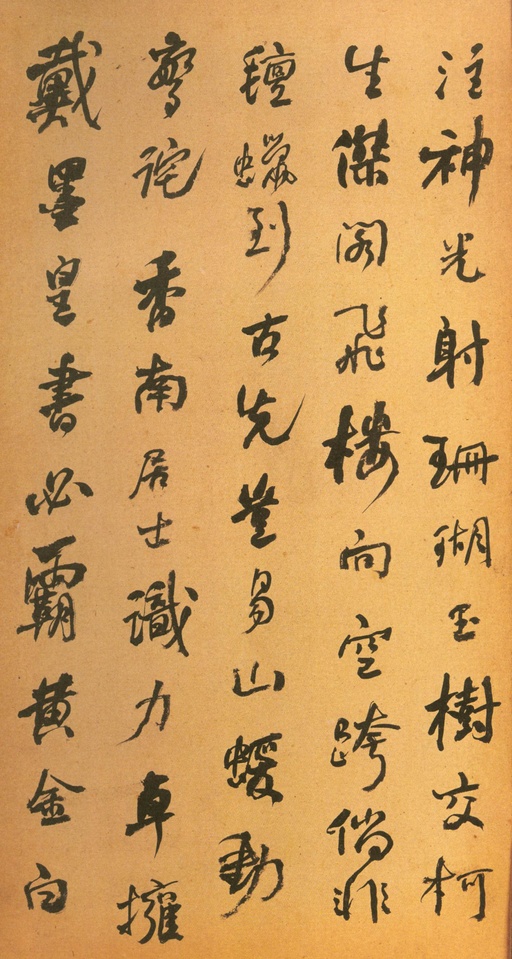 注神光射珊瑚玉樹交柯
生傑閣飛樓向空跨倘非
氈蠟到古先豈易山蝯動
驚詫香南居士識力卓擁
戴墨皇書必霸黃金白